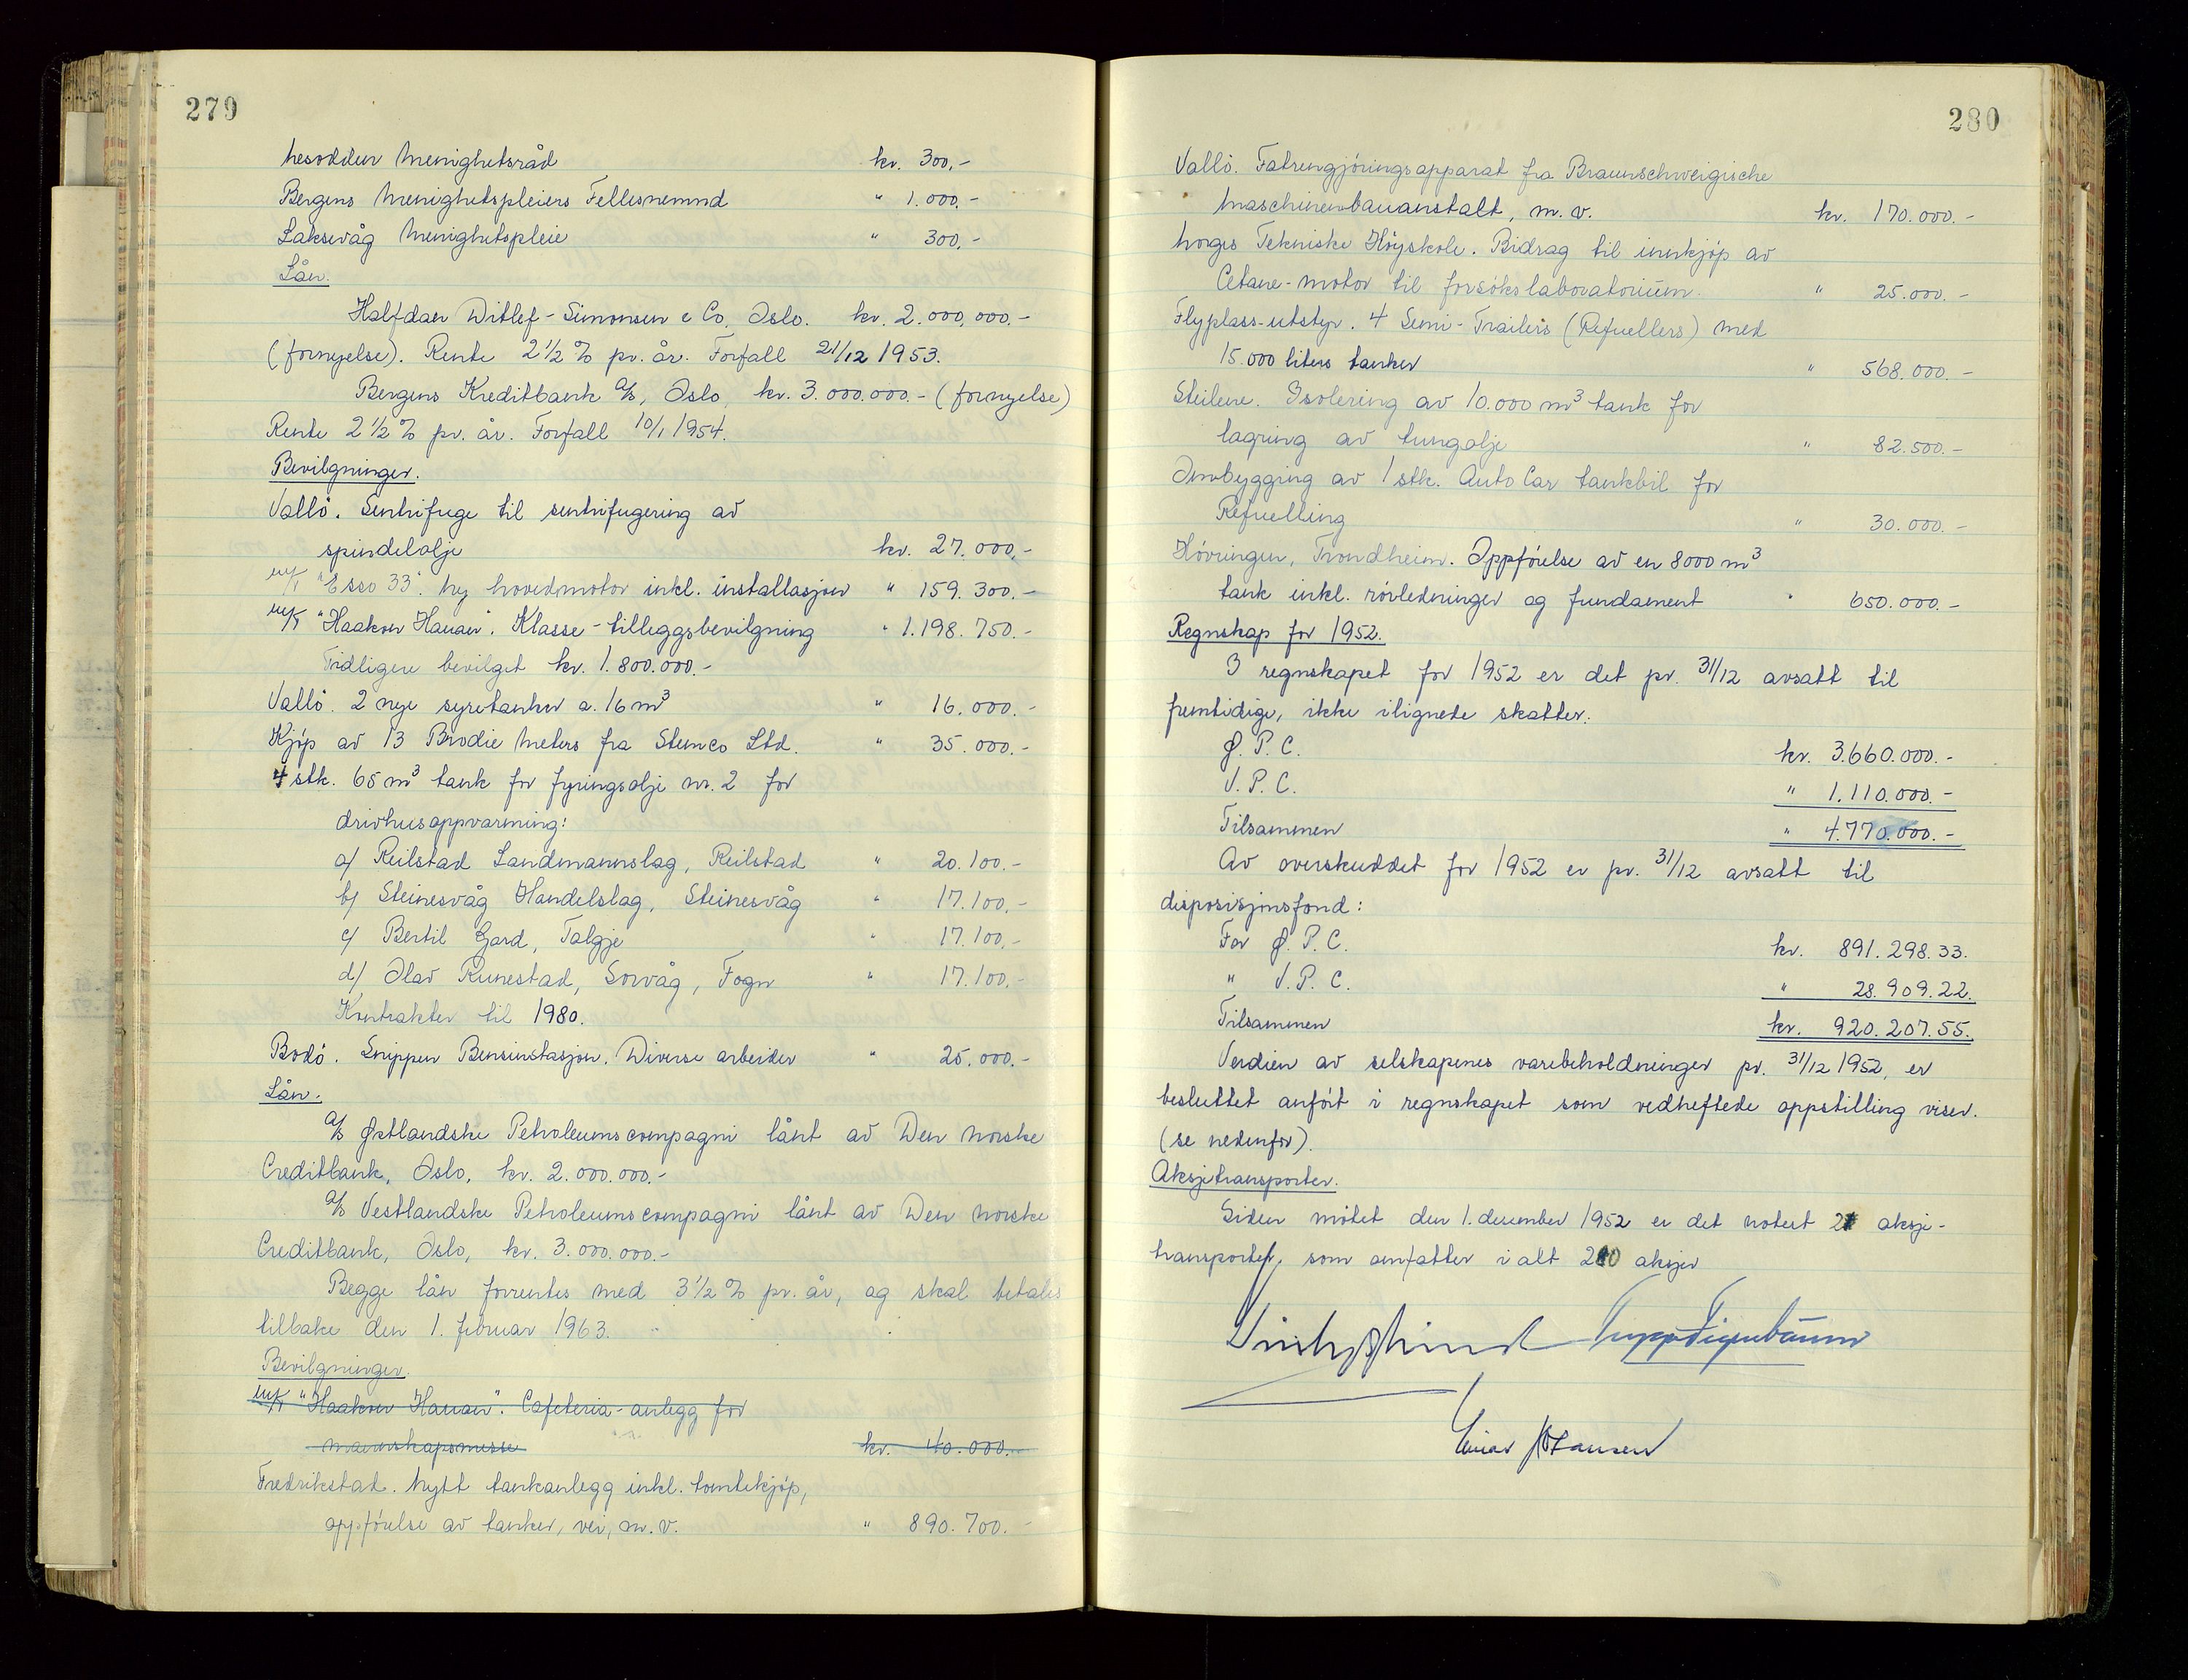 279
Nesodden Menighetsråd kr. 300,-
Bergens Menighetspleiers Fellesnemnd " 1.000.-
Laksevåg Menighetspleie " 300,-
Lån.
Halfdan Ditlef-Simonsen & Co, Oslo. kr. 2.000,000.-
(fornyelse). Rente 2 1/2 % pr. år. Forfall 21/12 1953.
Bergens Kreditbank A/S, Oslo, kr. 3.000.000.- (fornyelse)
Rente 2 1/2 % pr. år. Forfall 10/1 1954.
Bevilgninger.
Vallö. Sentrifuge til sentrifugering av
spindelolje kr. 27.000,-
M/T "Esso 33". Ny hovedmotor inkl. installasjon " 159.300.-
M/T "Haakon Hauan". Klasse-tilleggsbevilgning " 1.198.750.-
Tidligere bevilget kr. 1.800.000.-
Vallö. 2 nye syretanker a. 16 m³ " 16.000.-
Kjøp av 13 Brodie Meters fra Stemco Ltd. " 35.000.-
4 stk. 65 m³ tank for fyringsolje nr. 2 for
drivhusoppvarming:
a/ Reilstad Landmannslag, Reilstad " 20.100.-
b/ Steinesvåg Handelslag, Steinesvåg " 17.100.-
c/ Bertil Gard, Talgje " 17.100,-
d/ Olav Runestad, Sorvåg, Fogn " 17.100.-
Kontrakter til 1980.
Bodö. Snippen Bensinstasjon. Diverse arbeider " 25.000.-
Lån.
A/S Østlandske Petroleumscompagni lånt av Den norske
Creditbank, Oslo, kr. 2.000.000.-
A/S Vestlandske Petroleumscompagni lånt av Den norske
Creditbank, Oslo, kr. 3.000.000.-
Begge lån forrentes med 3 1/2 % pr. år, og skal betales
tilbake den 1. februar 1963.
Bevilgninger.
M/T "Haakon Hauan". Cafeteria-anlegg for
mannskapsmesse kr. 40.000.-
Fredrikstad. Nytt tankanlegg inkl. tomtekjøp,
oppförelse av tanker, vei, m.v. " 890.700.-
280
Vallö. Fatrengjöringsapparat fra Braunschweigische
Maschinenbauanstalt, m.v. kr. 170.000.-
Norges Tekniske Høyskole. Bidrag til innkjøp av
Cetane-motor til forsökslaboratorium. " 25.000.-
Flyplass-utstyr. 4 Semi-Trailers (Refuellers) med
15.000 liters tanker " 568.000.-
Steilene. Isolering av 10.000 m³ tank for
lagring av tungolje " 82.500.-
Ombygging av 1 stk. AutoCar tankbil for
Refuelling " 30.000.-
Hövringen, Trondheim. Oppförelse av en 8000 m³
tank inkl. rörledninger og fundament " 650.000.-
Regnskap for 1952.
I regnskapet for 1952 er det pr. 31/12 avsatt til
fremtidige, ikke ilignede skatter.
Ø.P.C. kr. 3.660.000.-
V.P.C. " 1.110.000.-
Tilsammen " 4.770.000.-
Av overskuddet for 1952 er pr. 31/12 avsatt til
disposisjonsfond:
For Ø.P.C. kr. 891.298.33.
" V.P.C. " 28.909.22.
Tilsammen kr. 920.207.55.
Verdien av selskapenes varebeholdninger pr. 31/12 1952, er
besluttet anfört i regnskapet som vedheftede oppstilling viser.
(se nedenfor).
Aksjetransporter.
Siden mötet den 1. desember 1952 er det notert aksje-
transporter, som omfatter i alt aksjer
Einar Hansen